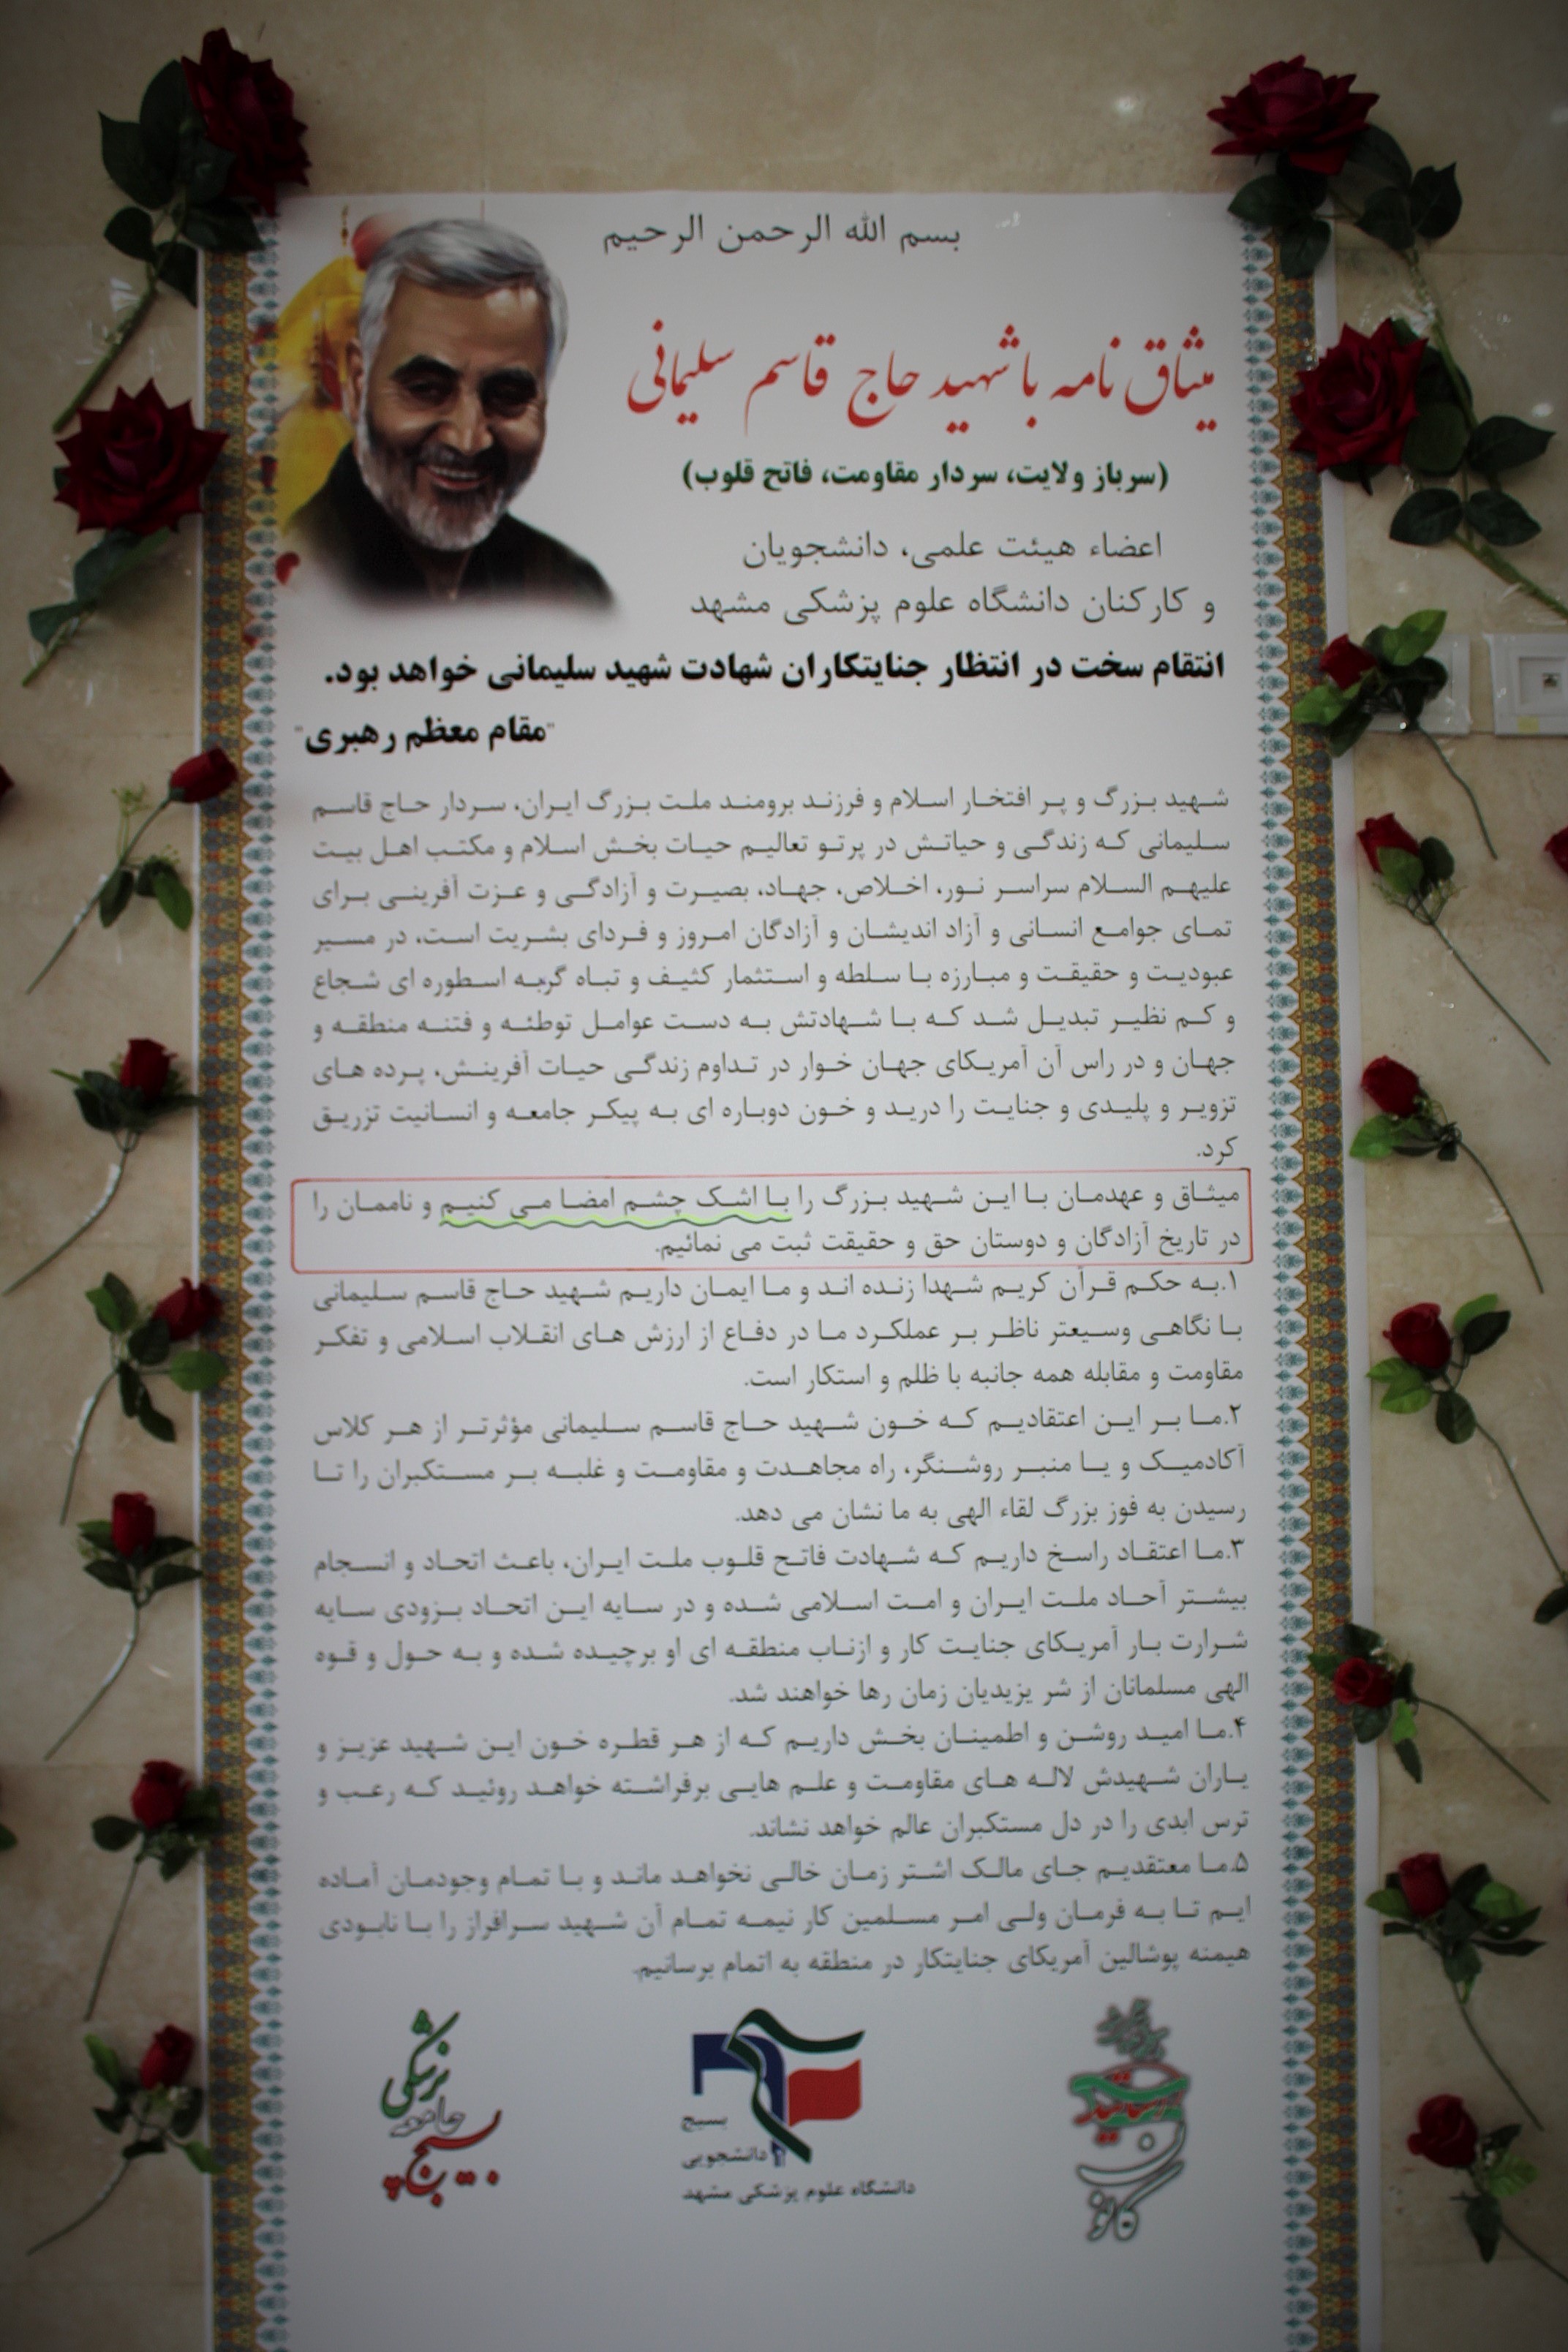 بسم الله الرحمن الرحیم
میثاق نامه با شهید حاج قاسم سلیمانی
(سرباز ولایت، سردار مقاومت، فاتح قلوب)
اعضاء هیئت علمی، دانشجویان
و کارکنان دانشگاه علوم پزشکی مشهد
انتقام سخت در انتظار جنایتکاران شهادت شهید سلیمانی خواهد بود.
"مقام معظم رهبری"
شهید بزرگ و پر افتخار اسلام و فرزند برومند ملت بزرگ ایران، سردار حاج قاسم
سلیمانی که زندگی و حیاتش در پرتو تعالیم حیات بخش اسلام و مکتب اهل بیت
علیهم السلام سراسر نور، اخلاص، جهاد، بصیرت و آزادگی و عزت آفرینی برای
تمای جوامع انسانی و آزاد اندیشان و آزادگان امروز و فردای بشریت است، در مسیر
عبودیت و حقیقت و مبارزه با سلطه و استثمار کثیف و تباه گربه اسطوره ای شجاع
و کم نظیر تبدیل شد که با شهادتش به دست عوامل توطئه و فتنه منطقه و
جهان و در راس آن آمریکای جهان خوار در تداوم زندگی حیات آفرینش، پرده های
تزویر و پلیدی و جنایت را درید و خون دوباره ای به پیکر جامعه و انسانیت تزریق
کرد.
میثاق و عهدمان با این شهید بزرگ را با اشک چشم امضا می کنیم و ناممان را
در تاریخ آزادگان و دوستان حق و حقیقت ثبت می نمائیم.
۱.به حکم قرآن کریم شهدا زنده اند و ما ایمان داریم شهید حاج قاسم سلیمانی
با نگاهی وسیعتر ناظر بر عملکرد ما در دفاع از ارزش های انقلاب اسلامی و تفکر
مقاومت و مقابله همه جانبه با ظلم و استکار است.
۲.ما بر این اعتقادیم که خون شهید حاج قاسم سلیمانی مؤثرتر از هر کلاس
آکادمیک و یا منبر روشنگر، راه مجاهدت و مقاومت و غلبه بر مستکبران را تا
رسیدن به فوز بزرگ لقاء الهی به ما نشان می دهد.
۳.ما اعتقاد راسخ داریم که شهادت فاتح قلوب ملت ایران، باعث اتحاد و انسجام
بیشتر آحاد ملت ایران و امت اسلامی شده و در سایه این اتحاد بزودی سایه
شرارت بار آمریکای جنایت کار و ازناب منطقه ای او برچیده شده و به حول و قوه
الهی مسلمانان از شر یزیدیان زمان رها خواهند شد.
۴.ما امید روشن و اطمینان بخش داریم که از هر قطره خون این شهید عزیز و
یاران شهیدش لاله های مقاومت و علم هایی برفراشته خواهد روئید که رعب و
ترس ابدی را در دل مستکبران عالم خواهد نشاند.
۵.ما معتقدیم جای مالک اشتر زمان خالی نخواهد ماند و با تمام وجودمان آماده
ایم تا به فرمان ولی امر مسلمین کار نیمه تمام آن شهید سرافراز را با نابودی
هیمنه پوشالین آمریکای جنایتکار در منطقه به اتمام برسانیم.
کانون
بسیج
دانشجویی
دانشگاه علوم پزشکی مشهد
بسیج جامعه پزشکی